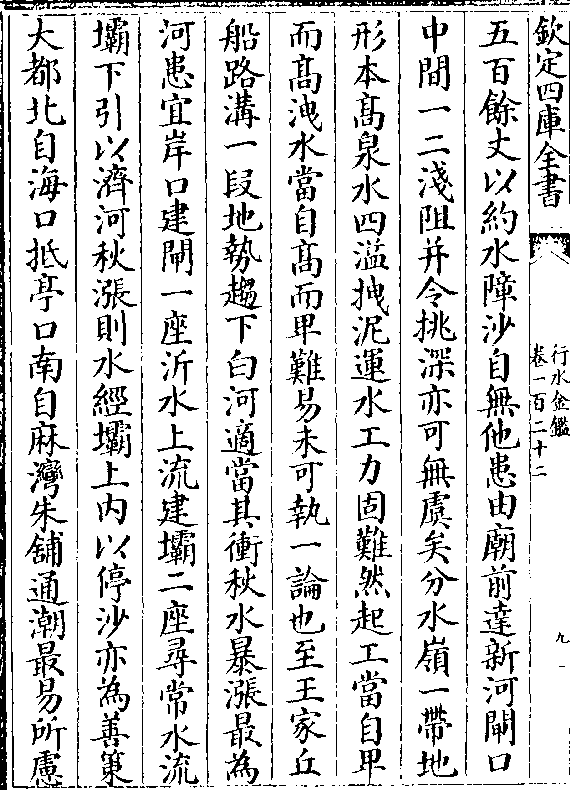 欽定四庫全書
行水金鑑
卷一百二十二
九
五百餘丈以約水障沙自無他患由廟前達新河閘口
中間一二淺阻并令挑深亦可無虞矣分水嶺一帶地
形本髙泉水四溢拽泥運水工力固難然起工當自卑
而髙洩水當自髙而卑難易未可執一論也至王家丘
船路溝一段地勢趨下白河適當其衝秋水暴漲最為
河患宜岸口建閘一座沂水上流建壩二座尋常水流
壩下引以濟河秋漲則水經壩上内以停沙亦為善策
大都北自海口抵亭口南自麻灣朱舖通潮最易所慮